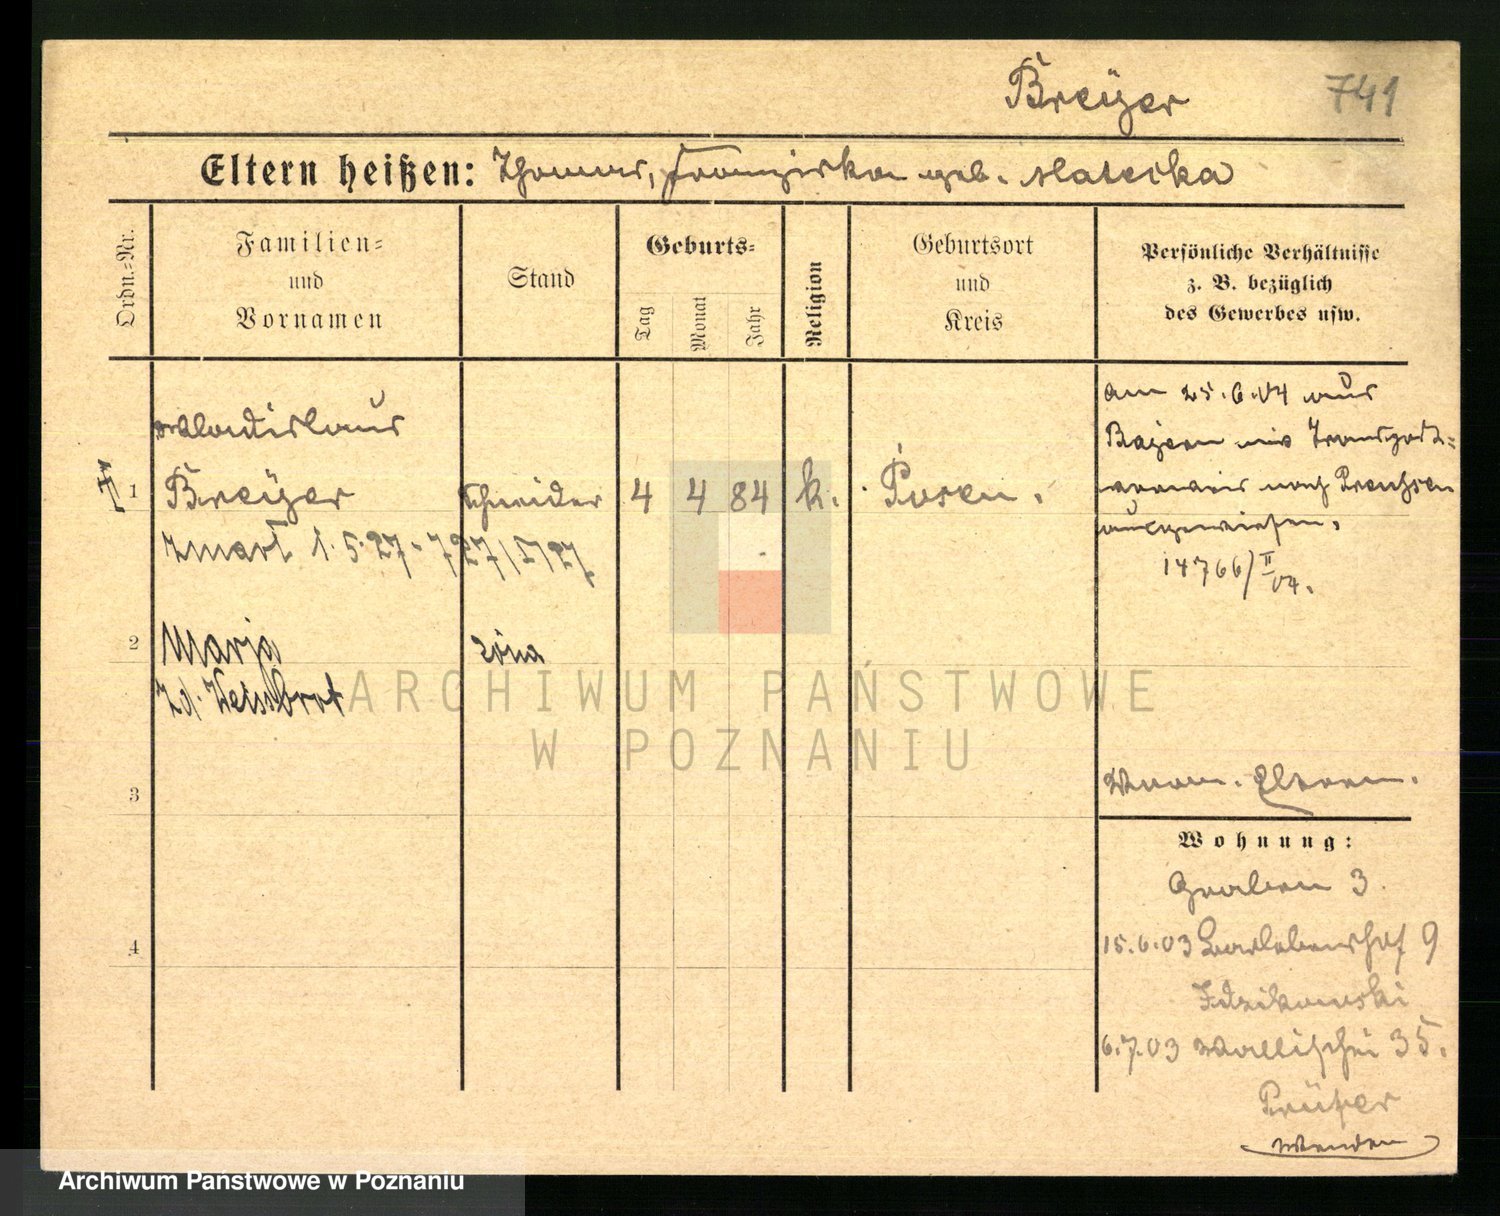 Breÿer
741
Eltern heißen: Thomas, Franziska geb. Matecka
Ordn.=Nr.
Familien=
und
Vornamen
Stand
Geburts=
Tag
Monat
Jahr
Religion
Geburtsort
und
Kreis
Persönliche Verhältnisse
z. B. bezüglich
des Gewerbes usw.
Wladislaus
1
Breÿer
Schneider
4
4
84
k.
Posen.
am 25.6.04 aus
Bayern mit Transport=
nach Preußen
ausgewiesen.
14766/II 04.
Zmarł 1.5.27 - 727/I/27
2
Marja
żona
Zd. Weissbrot
ARCHIWUM PAŃSTWOWE
W POZNANIU
3
Eltern.
Wohnung:
Graben 3.
4
15.6.03 9
Idzikowski
6.7.03 Wallischei 35.
Prüfer
Wenden
Archiwum Państwowe w Poznaniu